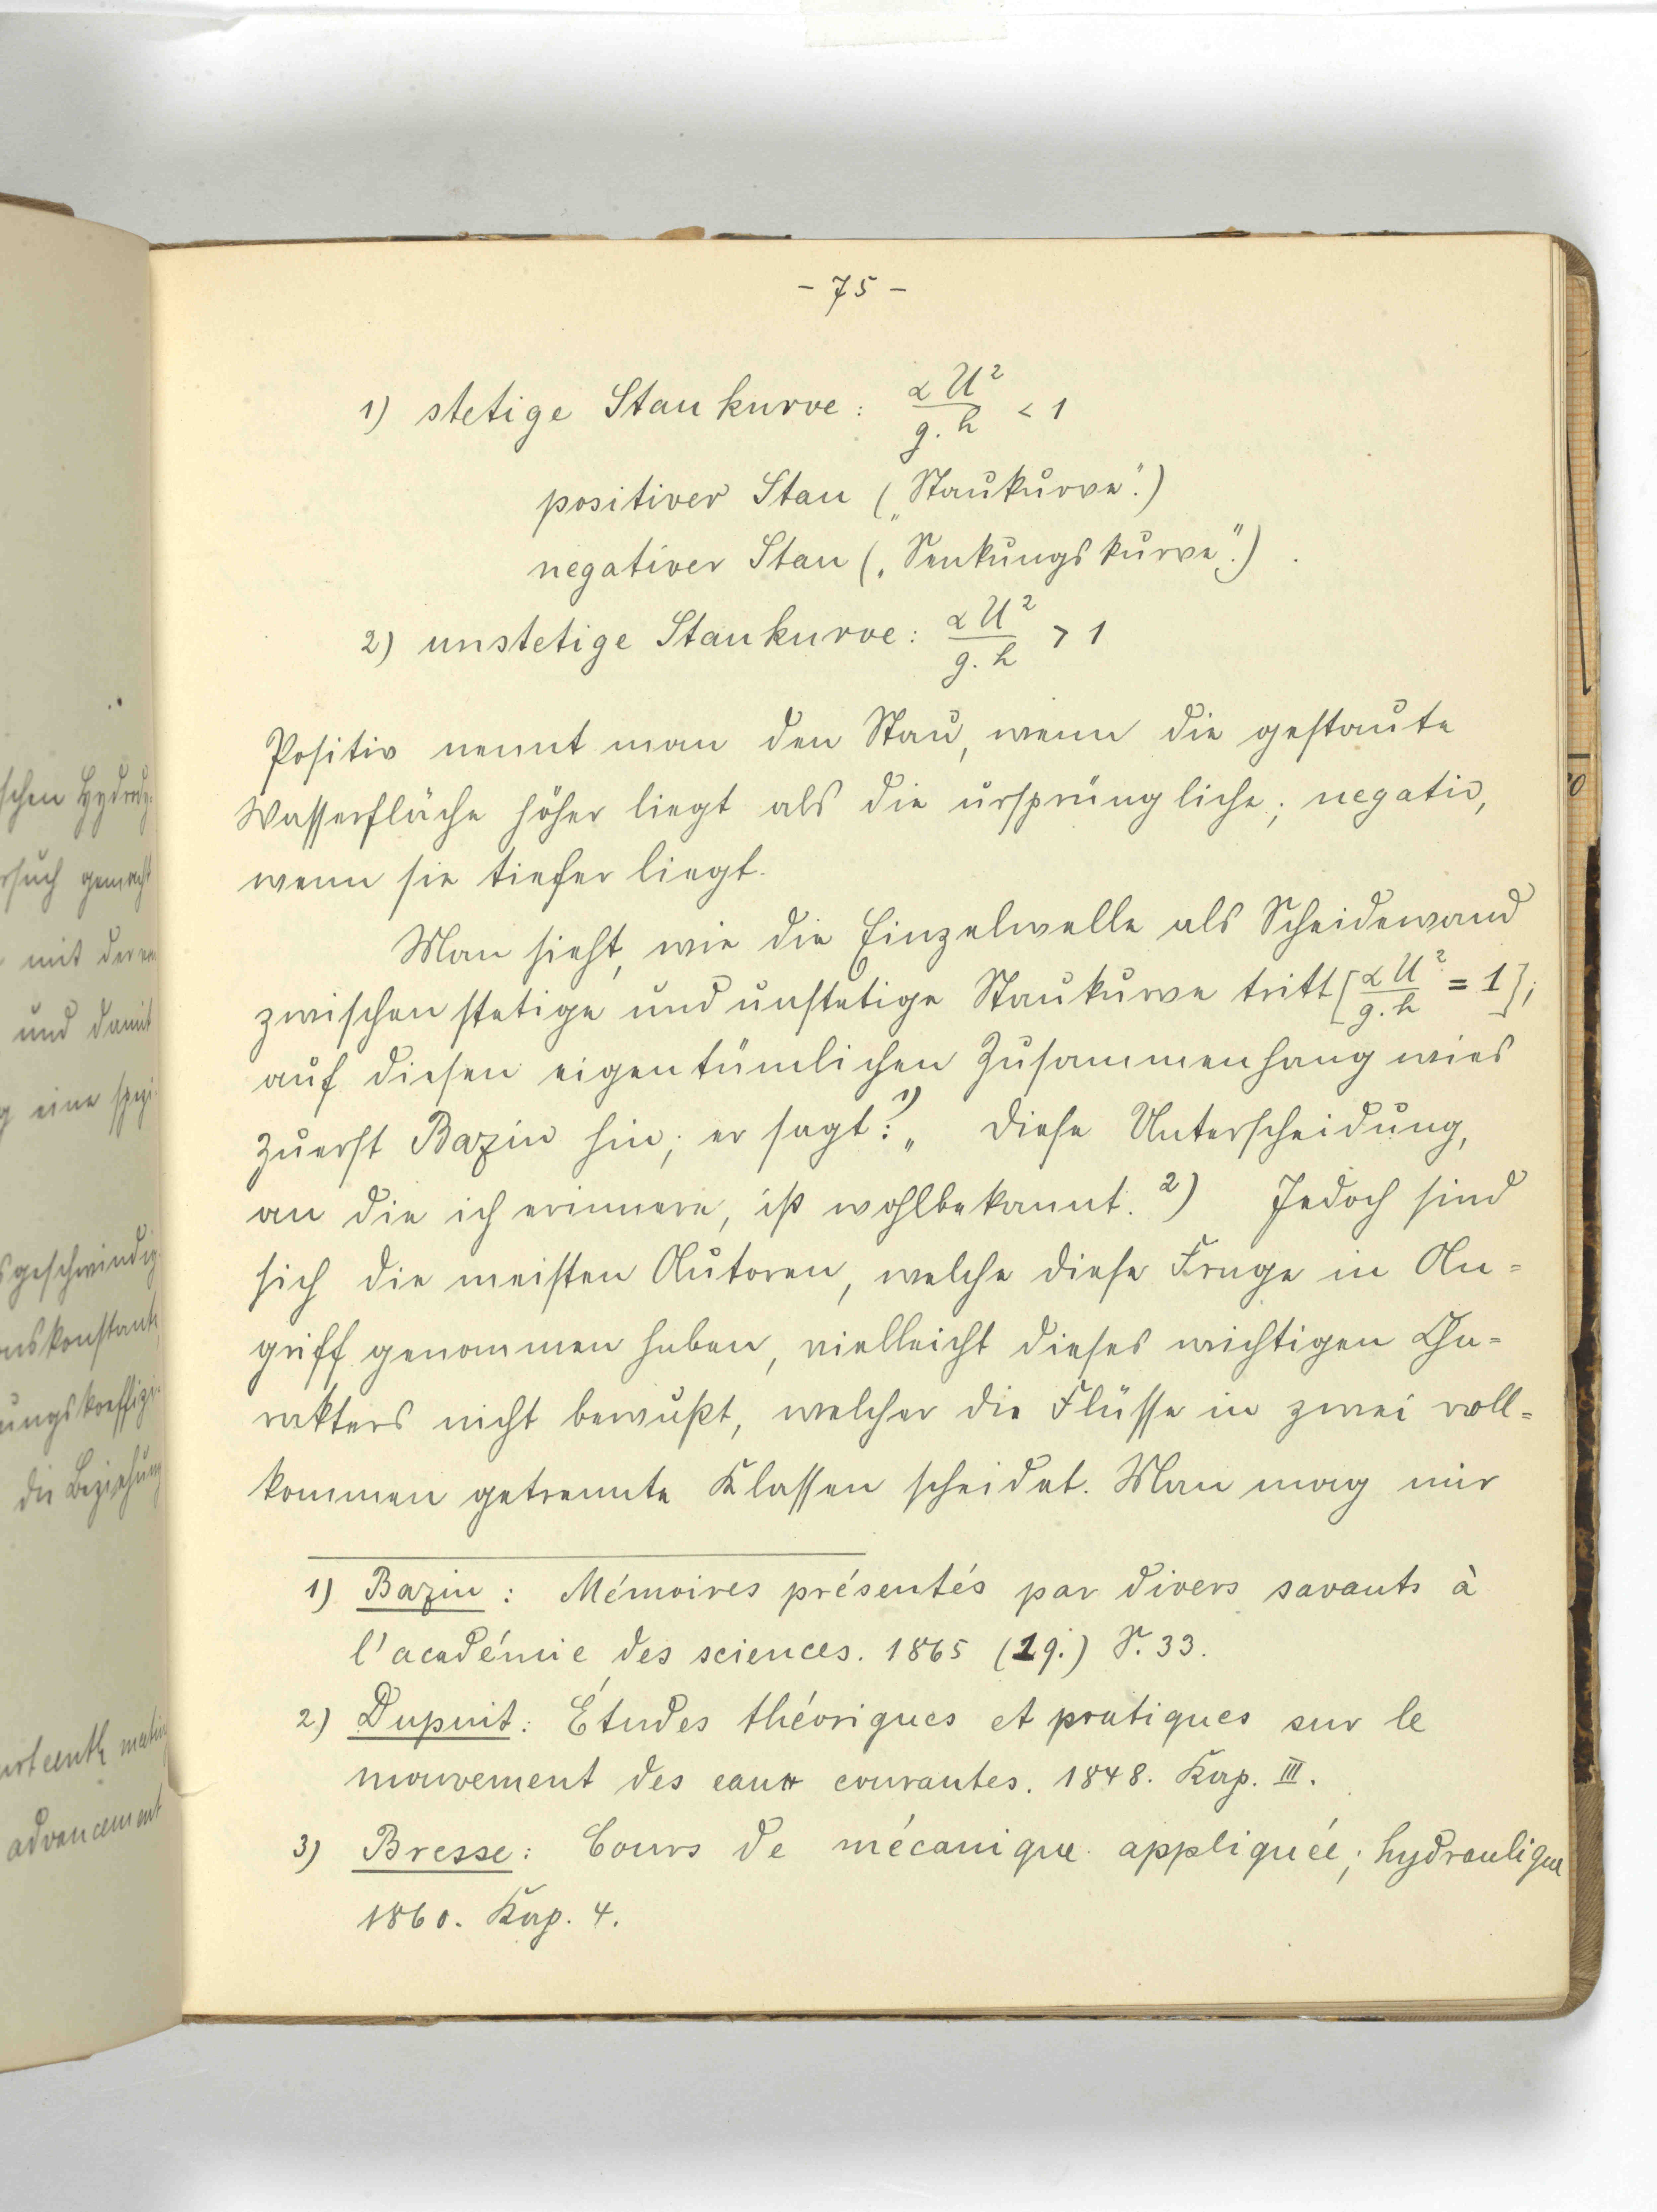 schen Hydrody-
rsuch gemacht
mit deren
und damit
g eine spezi-
sgeschwindig-
onskonstante
ungskoeffizi-
die Beziehung
urteenth meeting
advancement
- 75 -
1) stetige Staukurve: αU²/g.h < 1
positiver Stau („Staukurve“.)
negativer Stau („Senkungskurve“.)
2) unstetige Staukurve: αU²/g.h > 1
Positiv nennt man den Stau, wenn die gestaute
Wasserfläche höher liegt als die ursprüngliche; negativ,
wenn sie tiefer liegt.
Man sieht, wie die Einzelwelle als Scheidewand
zwischen stetige und unstetige Staukurve tritt [αU²/g.h = 1];
auf diesen eigentümlichen Zusammenhang wies
zuerst Bazin hin; er sagt:¹⁾ „Diese Unterscheidung,
an die ich erinnere, ist wohlbekannt.²⁾ Jedoch sind
sich die meisten Autoren, welche diese Frage in An=
griff genommen haben, vielleicht dieses wichtigen Cha=
rakters nicht bewußt, welcher die Flüsse in zwei voll=
kommen getrennte Klassen scheidet. Man mag mir
1) Bazin: Mémoires présentés par divers savants à
l'académie des sciences. 1865 (19.) S. 33.
2) Dupuit: Études théoriques et pratiques sur le
mouvement des eaux courantes. 1848. Kap. III.
3) Bresse: Cours de mécanique appliquée; hydraulique
1860. Kap. 4.